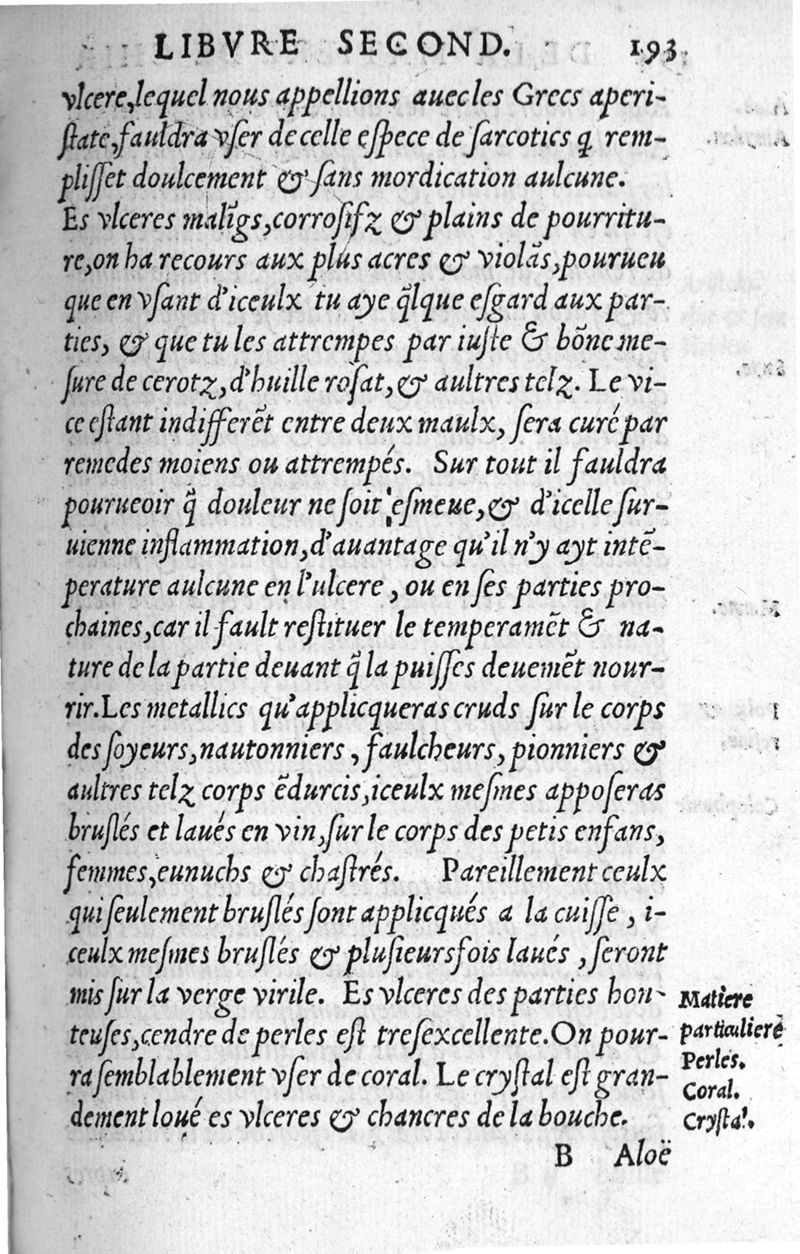 LIBVRE SECOND. 193
vlcere, lequel nous appellions auec les Grecs aperi-
ſtate, fauldra vſer de celle eſpece de ſarcotics q̃ rem-
pliſſet doulcement & ſans mordication aulcune.
Es vlceres malĩgs, corroſifz & plains de pourritu-
re, on ha recours aux plus acres & violãs, pourueu
que en vſant d'iceulx tu aye q̃lque eſgard aux par-
ties, & que tu les attrempes par iuſte & bõne me-
ſure de cerotz, d'huille roſat, & aultres telz. Le vi-
ce eſtant indifferẽt entre deux maulx, ſera curé par
remedes moiens ou attrempés. Sur tout il fauldra
pourueoir q̃ douleur ne ſoit eſmeue, & d'icelle ſur-
uienne inflammation, d'auantage qu'il n'y ayt intẽ-
perature aulcune en l'ulcere, ou en ſes parties pro-
chaines, car il fault reſtituer le temperamẽt & na-
ture de la partie deuant q̃ la puiſſes deuemẽt nour-
rir. Les metallics qu'applicqueras cruds ſur le corps
des ſoyeurs, nautonniers, faulcheurs, pionniers &
aultres telz corps ẽdurcis, iceulx meſmes appoſeras
bruſlés et laués en vin, ſur le corps des petis enfans,
femmes, eunuchs & chaſtrés. Pareillement ceulx
qui ſeulement bruſlés ſont applicqués a la cuiſſe, i-
ceulx meſmes bruſlés & pluſieurs fois laués, ſeront
mis ſur la verge virile. Es vlceres des parties hon-
teuſes, cendre de perles eſt treſexcellente. On pour-
ra ſemblablement vſer de coral. Le cryſtal eſt gran-
dement loué es vlceres & chancres de la bouche.
Matiere
particuliere
Perles.
Coral.
Cryſtal.
B Aloë